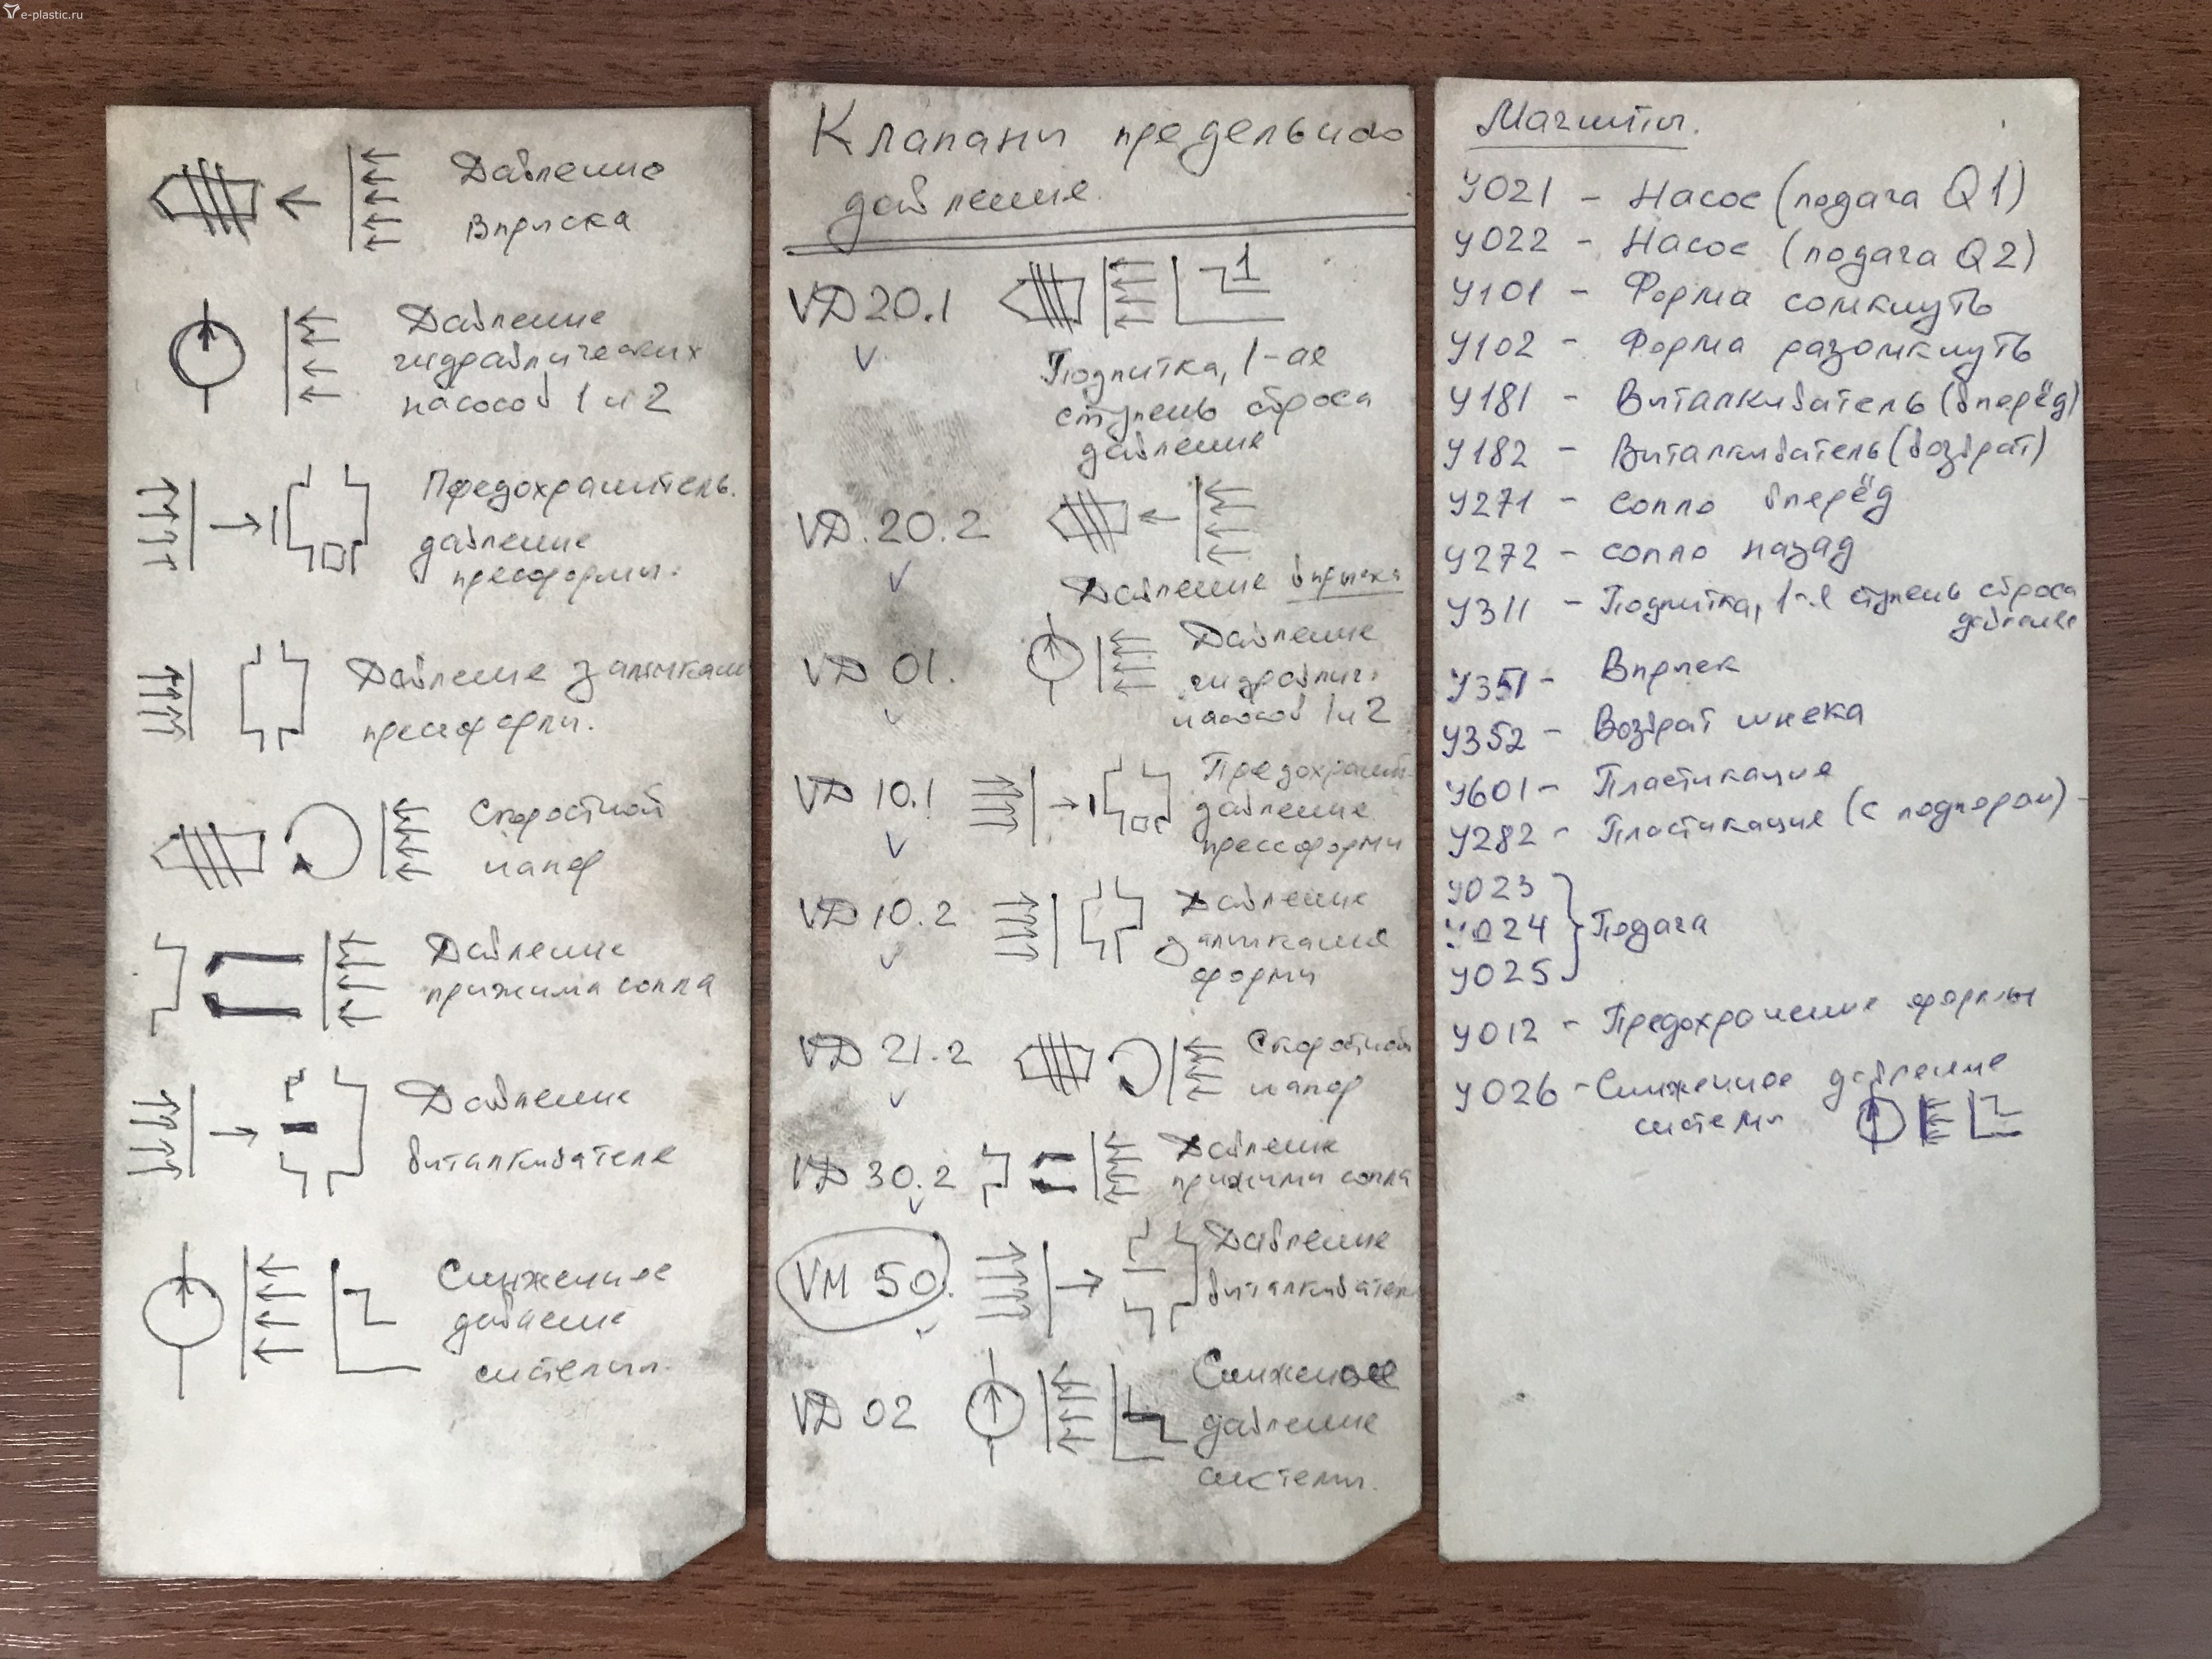 e-plastic.ru
Давление
впрыска
Давление
гидравлических
насосов 1 и 2
Предохранитель.
давление
прессформы.
Давление запыкани
прессформы.
Скоростной
напор
Давление
прижима сопла
Давление
виталкивателя
Сниженное
давление
системы.
Клапани предельного
давления.
VD20.1
1
Подпитка, 1-ая
ступень сброса
давления
VD.20.2
Давление впрыска
VD 01.
Давление
гидравлич.
насосов 1 и 2
VD 10.1
Предохранит.
давление
прессформи
VD 10.2
Давление
запыкания
форми
VD 21.2
Скоростной
напор
VD 30.2
Давление
прижими сопла
VM 50.
Давление
виталкивател
VD 02
Сниженное
давление
системы.
Магниты.
У021 - Насос (подача Q1)
У022 - Насос (подача Q2)
У101 - Форма сомкнуть
У102 - Форма разомкнуть
У181 - Виталкиватель (вперёд)
У182 - Виталкиватель (возврат)
У271 - сопло вперёд
У272 - сопло назад
У311 - Подпитка, 1-я ступень сброса
давления
У351 - Впрыск
У352 - Возврат шнека
У601 - Пластикация
У282 - Пластикация (с подпором)
У023
У024 Подача
У025
У012 - Предохранение формы
У026 - Сниженное давление
системы